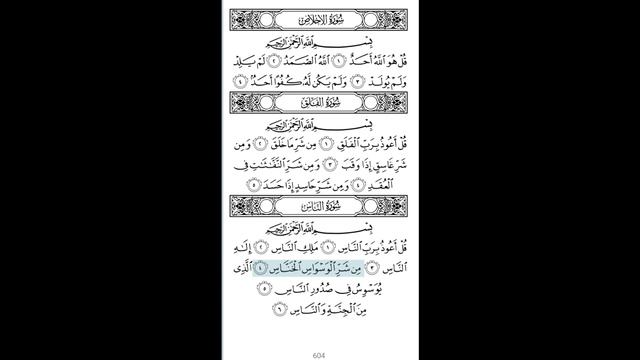 سُورَةُ الإِخْلَاصِ
بِسْمِ اللَّهِ الرَّحْمَٰنِ الرَّحِيمِ
قُلْ هُوَ اللَّهُ أَحَدٌ ١ اللَّهُ الصَّمَدُ ٢ لَمْ يَلِدْ
وَلَمْ يُولَدْ ٣ وَلَمْ يَكُن لَّهُ كُفُوًا أَحَدٌ ٤
سُورَةُ الفَلَقِ
بِسْمِ اللَّهِ الرَّحْمَٰنِ الرَّحِيمِ
قُلْ أَعُوذُ بِرَبِّ الْفَلَقِ ١ مِن شَرِّ مَا خَلَقَ ٢ وَمِن
شَرِّ غَاسِقٍ إِذَا وَقَبَ ٣ وَمِن شَرِّ النَّفَّٰثَٰتِ فِي
الْعُقَدِ ٤ وَمِن شَرِّ حَاسِدٍ إِذَا حَسَدَ ٥
سُورَةُ النَّاسِ
بِسْمِ اللَّهِ الرَّحْمَٰنِ الرَّحِيمِ
قُلْ أَعُوذُ بِرَبِّ النَّاسِ ١ مَلِكِ النَّاسِ ٢ إِلَٰهِ
النَّاسِ ٣ مِن شَرِّ الْوَسْوَاسِ الْخَنَّاسِ ٤ الَّذِي
يُوَسْوِسُ فِي صُدُورِ النَّاسِ ٥
مِنَ الْجِنَّةِ وَالنَّاسِ ٦
604